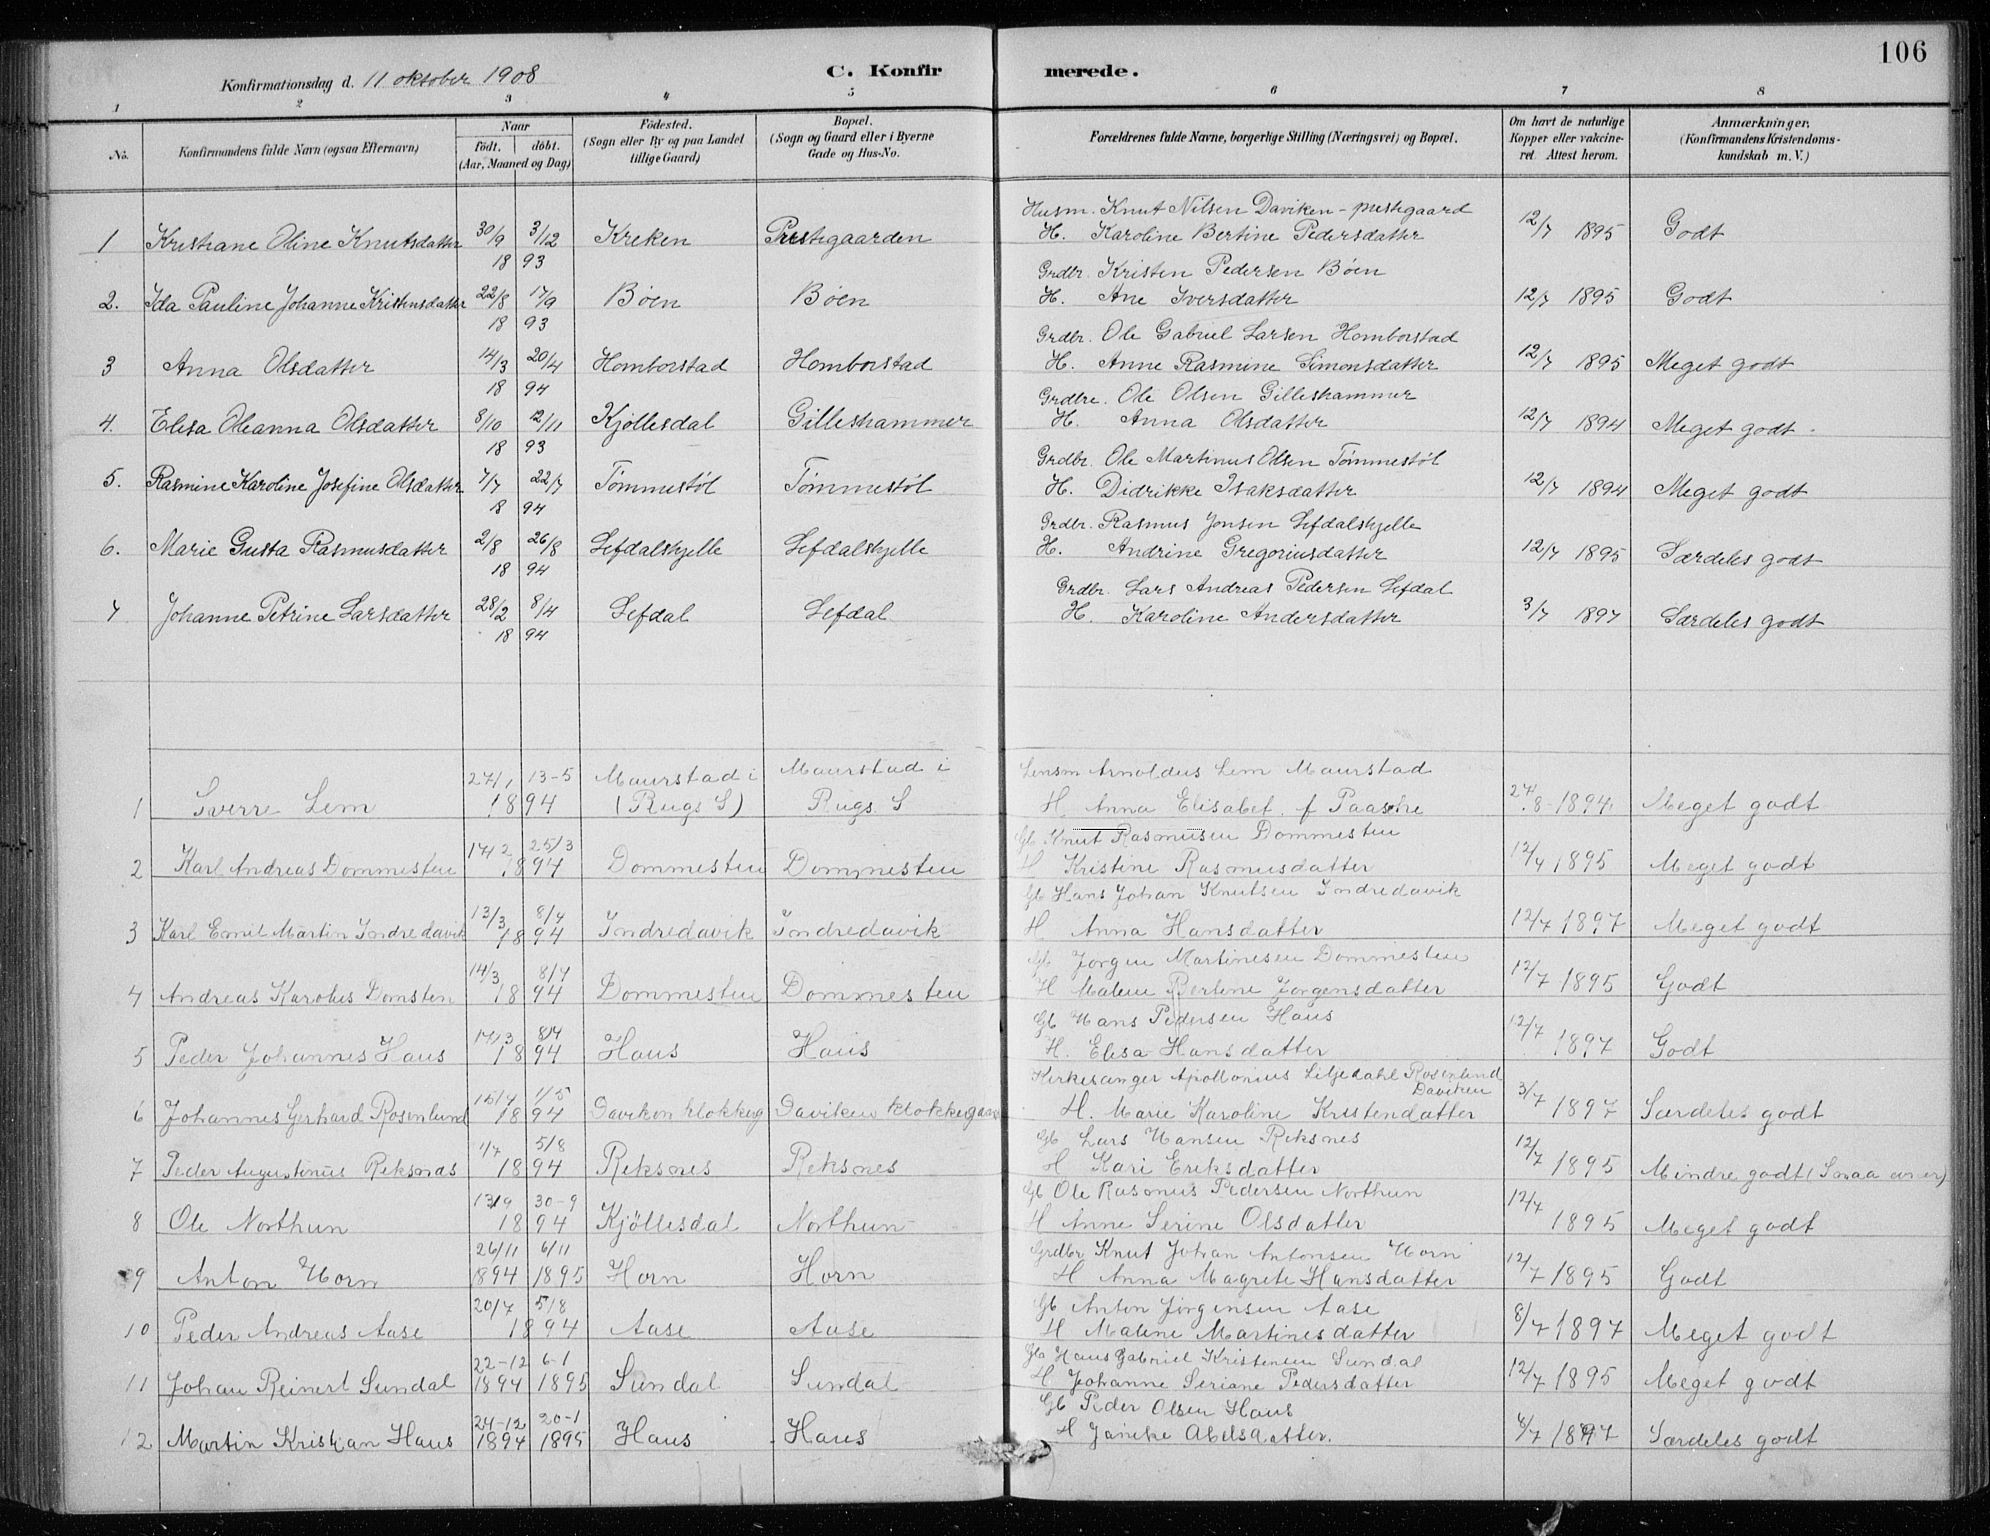 106
Konfirmationsdag d. 11 oktober 1908 C. Konfirmerede.
1 2 3 4 5 6 7 8
No. Konfirmandens fulde Navn (ogsaa Efternavn) Naar födt. döbt. (Aar, Maaned og Dag) Födested. (Sogn eller By og paa Landet tillige Gaard) Bopæl. (Sogn og Gaard eller i Byerne Gade og Hus-No. Forældrenes fulde Navne, borgerlige Stilling (Næringsvei) og Bopæl. Om havt de naturlige Kopper eller vakcineret. Attest herom. Anmærkninger. (Konfirmandens Kristendomskundskab m. V.)
Husm. Knut Nilsen Daviken-prestegaard
1 Kristiane Oline Knutsdatter 30/9 3/12 Kreken Prestegaarden H. Karoline Bertine Pedersdatter 12/7 1895 Godt
18 93
Grdbr. Kristen Pedersen Böen
2. Ida Pauline Johanne Kristensdatter 22/8 17/9 Böen Böen H. Ane Iversdatter 12/7 1895 Godt
18 93
Grdbr. Ole Gabriel Larsen Homborstad
3 Anna Olsdatter 14/3 20/4 Homborstad Homborstad H. Anne Rasmine Simonsdatter 12/7 1895 Meget godt
18 94
Grdbr. Ole Olsen Gilleshammer
4. Elisa Oleanna Olsdatter 8/10 12/11 Kjøllesdal Gilleshammer H. Anna Olsdatter 12/7 1894 Meget godt.
18 93
Grdbr. Ole Martinus Olsen Tømmestøl
5. Rasmine Karoline Josefine Olsdatter 7/7 22/7 Tømmestøl Tømmestøl H. Didrikke Isaksdatter 12/7 1894 Meget godt
18 94
Grdbr. Rasmus Jonsen Lefdalskjelle
6. Marie Gusta Rasmusdatter 2/8 26/8 Lefdalskjelle Lefdalskjelle H. Andrine Gregoriusdatter 12/7 1895 Særdeles godt
18 94
Grdbr. Lars Andreas Pedersen Lefdal
7 Johanne Petrine Larsdatter 28/2 8/4 Lefdal Lefdal H. Karoline Andersdatter 3/7 1897 Særdeles godt
18 94
27/1 13-5 Maurstad i Maurstad i Lensm Arnoldus Lem Maurstad
1 Sverre Lem 1894 (Rugs S) Rugs. S H. Anna Elisabet f Paasche 24/8-1894 Meget godt
17/2 25/3 Gb Knut Rasmusen Dommesten
2 Karl Andreas Dommesten 1894 Dommesten Dommesten H Kristine Rasmusdatter 12/7 1895 Meget godt
13/3 8/4 Gb Hans Johan Knutsen Indredavik
3 Karl Emil Martin Indredavik 1894 Indredavik Indredavik H Anna Hansdatter 12/7 1897 Meget godt
14/3 8/4 Gb Jorgen Martinesen Dommesten
4 Andreas Karolus Domsten 1894 Dommesten Dommesten H Malene Berline Jorgensdatter 12/7 1895 Godt
17/3 8/4 Gb Hans Pedersen Haus
5 Peder Johannes Haus 1894 Haus Haus H. Elisa Hansdatter 12/7 1897 Godt
15/4 1/5 Kirkesanger Apollonius Liljedahl Rosenlund Daviken
6 Johannes Gerhard Rosenlund 1894 Daviken klokkerg Daviken klokkergaard H. Marie Karoline Kristendatter 3/7 1897 Særdeles godt
1/7 5/8 Gb Lars Hansen Reksnes
7 Peder Augustinus Reksnæs 1894 Reksnes Reksnes H Kari Eriksdatter 12/7 1895 Mindre godt (Smaa evner)
13/9 30-9 Gb Ole Rasmus Pedersen Northun
8 Ole Northun 1894 Kjöllesdal Northun H Anne Serine Olsdatter 12/7 1895 Meget godt
26/11 6/11 Grdbr Knut Johan Antonsen Horn
9 Anton Horn 1894 1895 Horn Horn H Anna Magrete Hansdatter 12/7 1895 Godt
20/7 5/8 Gb Anton Jørgensen Aase
10 Peder Andreas Aase 1894 Aase Aase H Malene Martinesdatter 8/7 1897 Meget godt
22-12 6-1 Gb Hans Gabriel Kristensen Sundal
11 Johan Reinert Sundal 1894 1895 Sundal Sundal H Johanne Seriane Pedersdatter 12/7 1895 Meget godt
24-12 20-1 Gb Peder Olsen Haus
12 Martin Kristian Haus 1894 1895 Haus Haus H Janike Abelsdatter. 1897 Særdeles godt